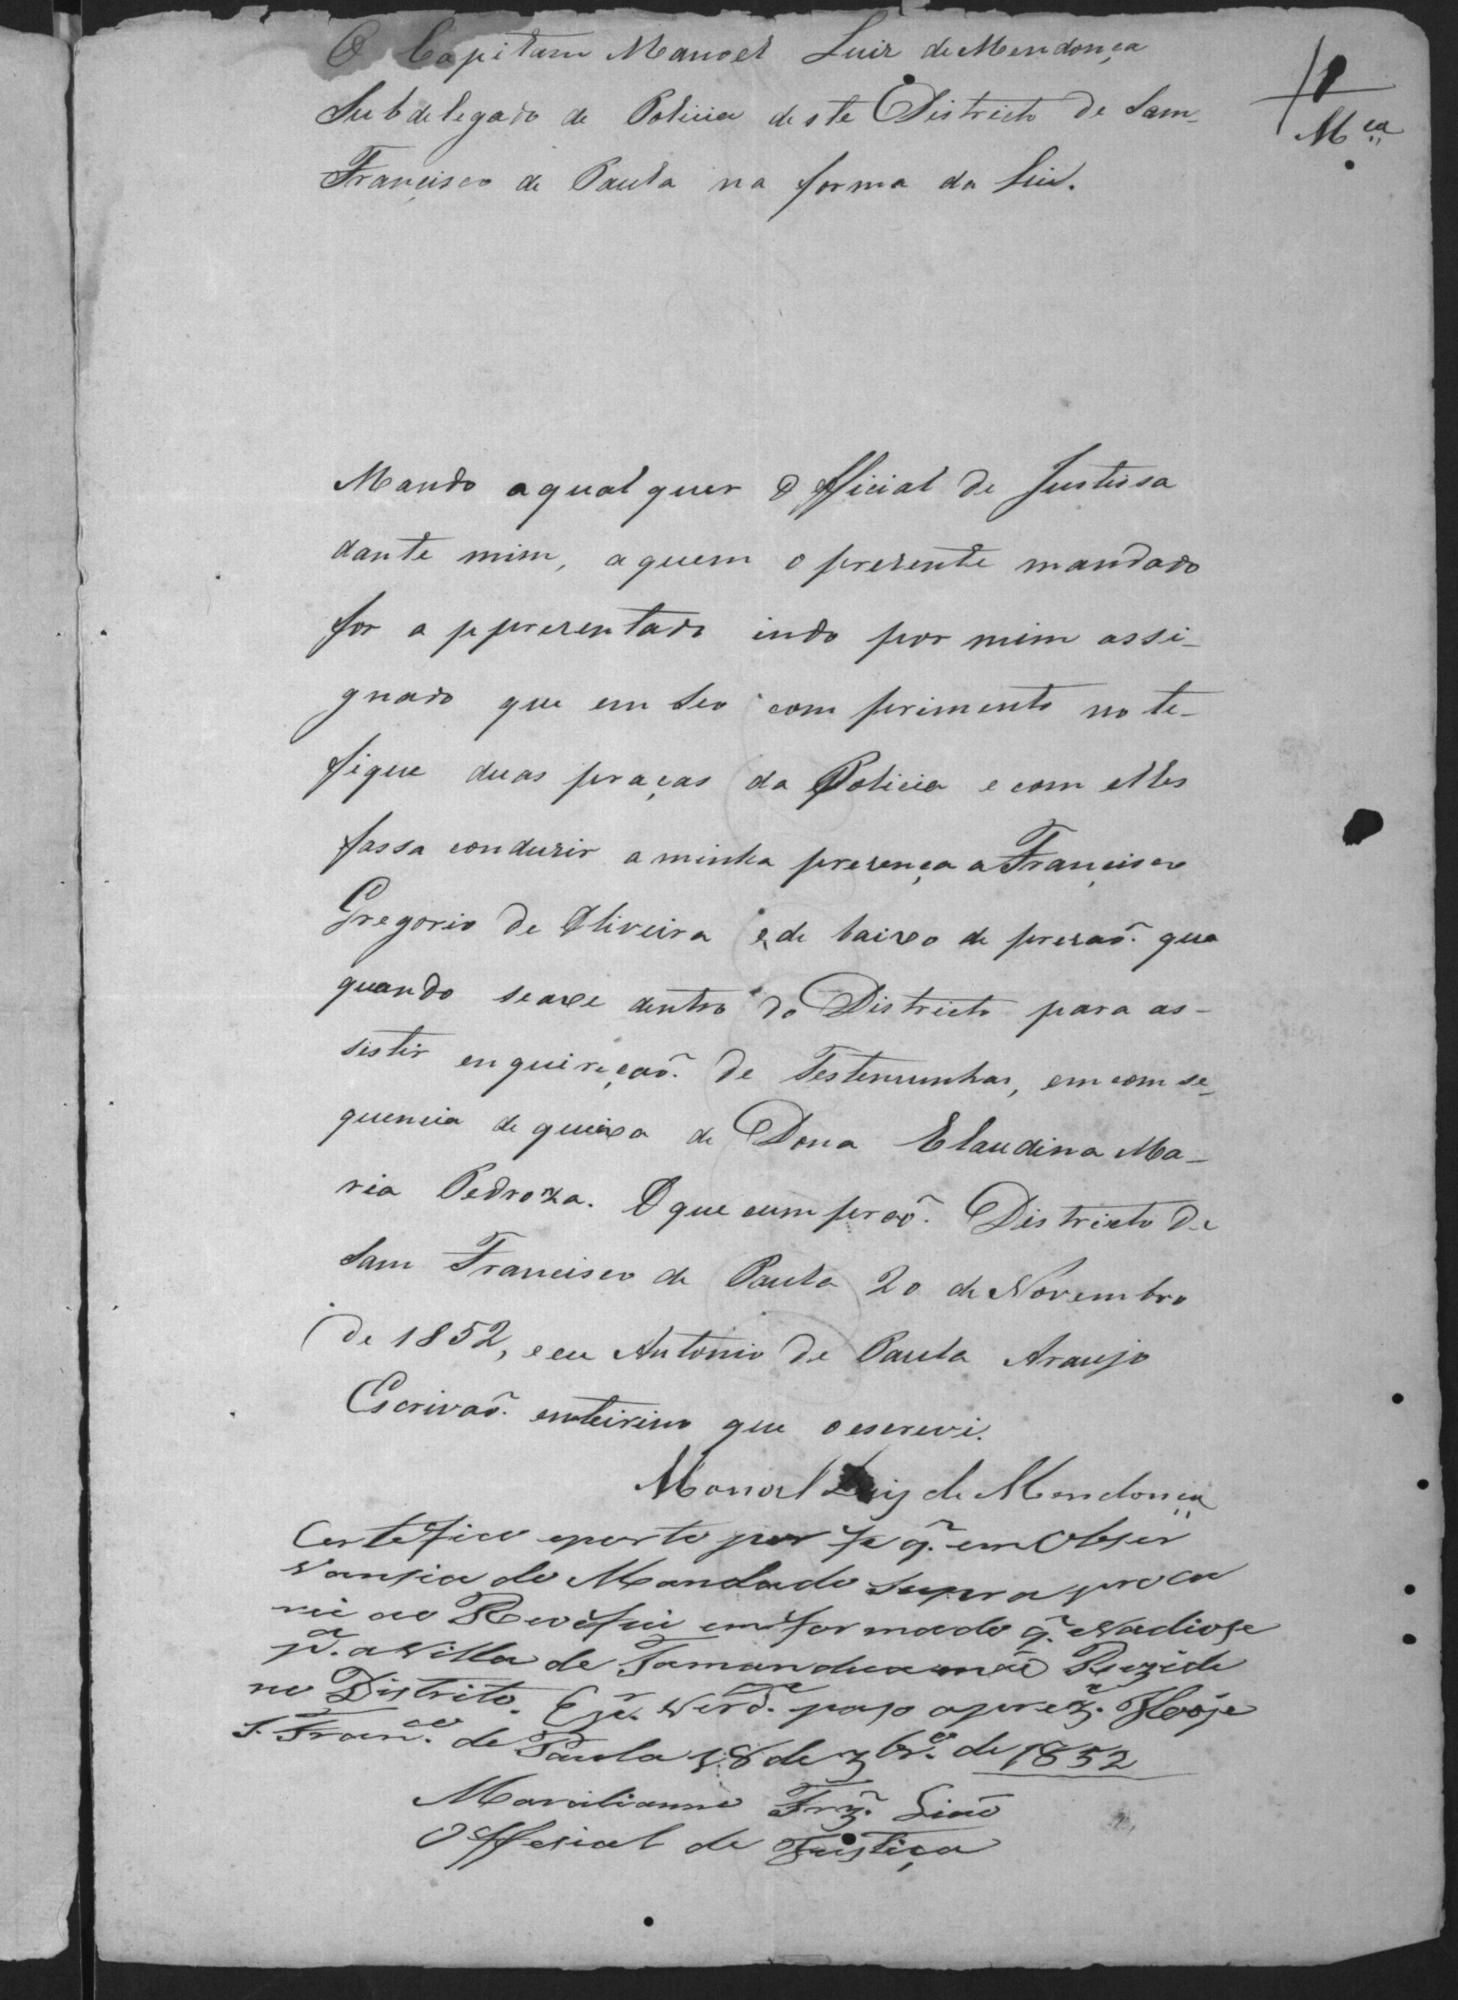 O Capitam Manoel Luiz de Mendonça
Subdelegado de Policia deste Districto de Sam
Francisco de Paula na forma da Lei.
Mca
Mando aqualquer Official de Justissa
dante mim, aquem o prezente mandado
for a pprezentado indo por mim assi-
gnado que em seo comprimento no te-
fique duas praças da Policia e com elles
fassa conduzir a minha prezença a Francisco
Gregorio de Oliveira e de baixo de prezaõ que
quando se axe dentro do Districto para as-
sistir enquireçaõ de Testemunhas, em com se-
quencia de queixa de Dona Claudina Ma-
ria Pedroza. O que cumpraõ. Districto de
Sam Francisco de Paula 20 de Novembro
de 1852, e eu Antonio de Paula Araujo
Escrivaõ enteirino que o escrevi.
Manoel Luiz de Mendonça
Certefico eporto por fe q̃ em Obser
vansia do Mandado Supra procu
rei ao Reo e fui emformado q̃
pa. a Villa de Tamandua não Rezide
no Distrito. E pr. verde. paso aprezte. Hoje
S. Franco. de Paula 18 de de 1852
Official de Justiça